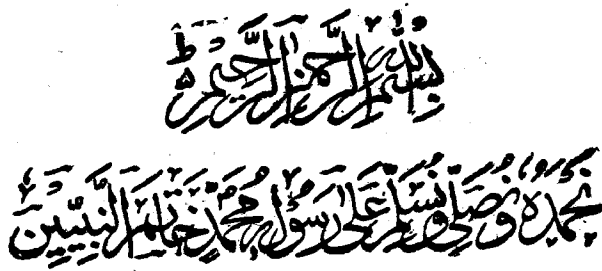 بِسْمِ اللهِ الرَّحْمٰنِ الرَّحِیْمِ ط
نَحْمَدُہٗ وَنُصَلِّیْ وَنُسَلِّمُ عَلٰی رَسُوْلِہٖ مُحَمَّدٍ خَاتَمِ النَّبِیِّیْنَ